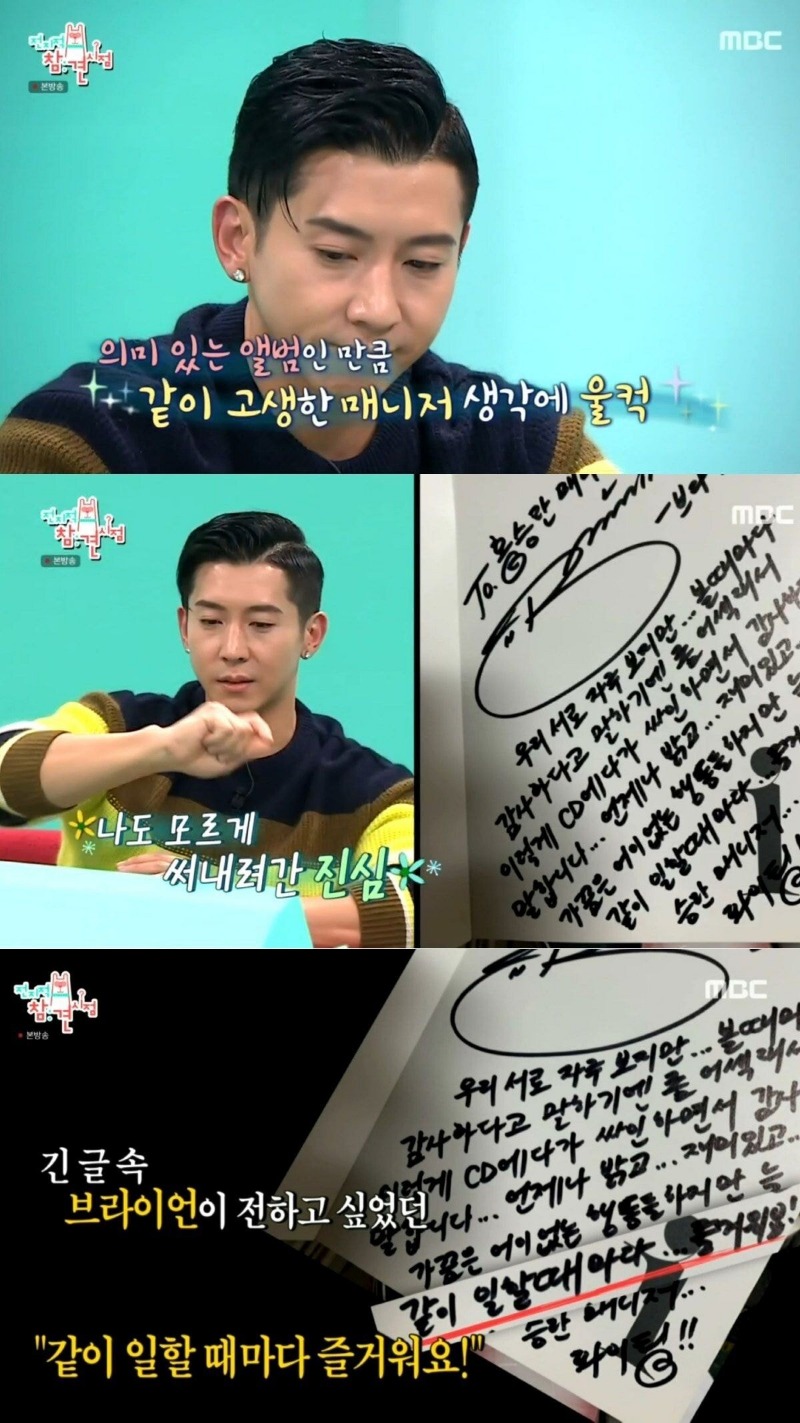 전지적
참견시점
본방송
MBC
의미 있는 앨범인 만큼
같이 고생한 매니저 생각에 울컥
전지적
참견시점
본방송
MBC
To. 홍승란 매니
우리 서로 자주 보지만... 볼때마다
감사하다고 말하기엔 좀 어색해서
이렇게 CD에다가 싸인하면서 감사
말합니다... 언제나 밝고... 재미있고...
가끔은 어이없는 행동을 하지만 늘
같이 일할때마다...
승란 매니저...
화이팅!!
나도 모르게
써내려간 진심
전지적
참견시점
본방송
MBC
우리 서로 자주 보지만... 볼때마
감사하다고 말하기엔 좀 어색해서
이렇게 CD에다가 싸인하면서 감사
말합니다... 언제나 밝고... 재미있고...
가끔은 어이없는 행동을 하지만 늘
같이 일할때마다... 즐거워요!
승란 매니저...
화이팅!!
긴 글 속
브라이언이 전하고 싶었던
"같이 일할 때마다 즐거워요!"